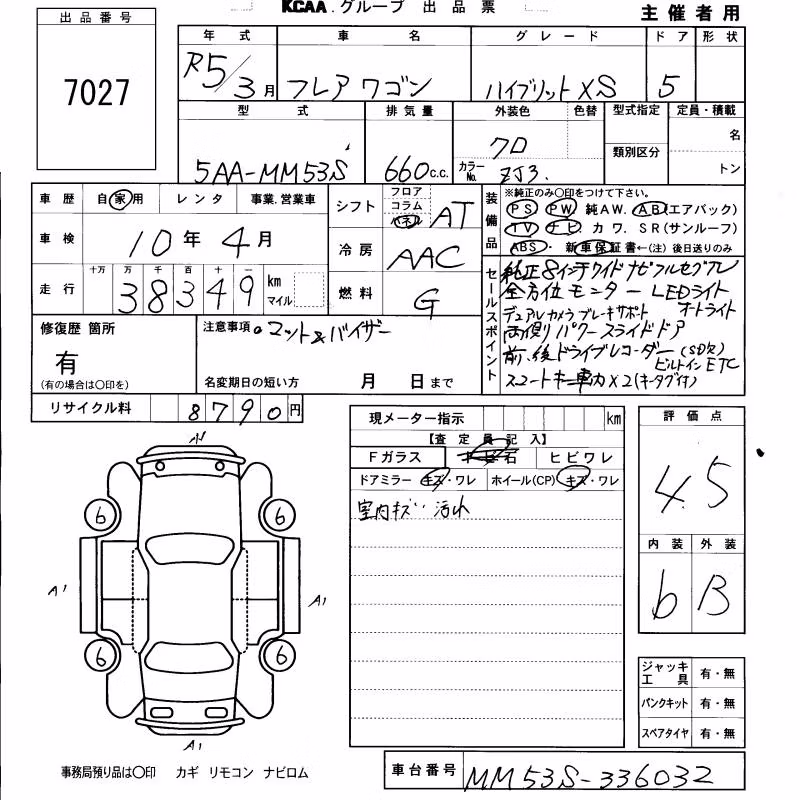 KCAA.グループ 出品票
主催者用
出品番号
7027
年式 車名 グレード ドア 形状
R5/3月 フレアワゴン ハイブリットXS 5
型式 排気量 外装色 色替 型式指定 定員・積載
5AA-MM53S 660c.c. クロ カラーNo. ZJ3. 類別区分 名 トン
車歴 自家用 レンタ 事業.営業車
車検 10年4月
走行 十万 万 千 百 十 一
38349 km マイル
シフト フロア コラム パネル AT
冷房 AAC
燃料 G
装備品
※純正のみ○印をつけて下さい。
PS PW 純AW. AB(エアバック)
TV ナビ カワ. SR(サンルーフ)
ABS・ 新車保証書←(注) 後日送りのみ
セールスポイント
純正8インチワイドナビフルセグTV
全方位モニター LEDライト
デュアルカメラブレーキサポート オートライト
両側パワースライドドア
前.後ドライブレコーダー(SD欠)
ビルトインETC
スマートキー車力x2(キータグ付)
修復歴 箇所
有
(有の場合は○印を)
注意事項。マット&バイザー
名変期日の短い方 月 日まで
リサイクル料 8790円
現メーター指示 km
【査定員記入】
Fガラス ヒビワレ
ドアミラー キズ・ワレ ホイール(CP) キズ・ワレ
室内キズ・汚れ
評価点
4.5
内装 外装
b B
ジャッキ工具 有・無
パンクキット 有・無
スペアタイヤ 有・無
6 6
A1 A1
6 6
A1
事務局預り品は○印 カギ リモコン ナビロム
車台番号 MM53S-336032